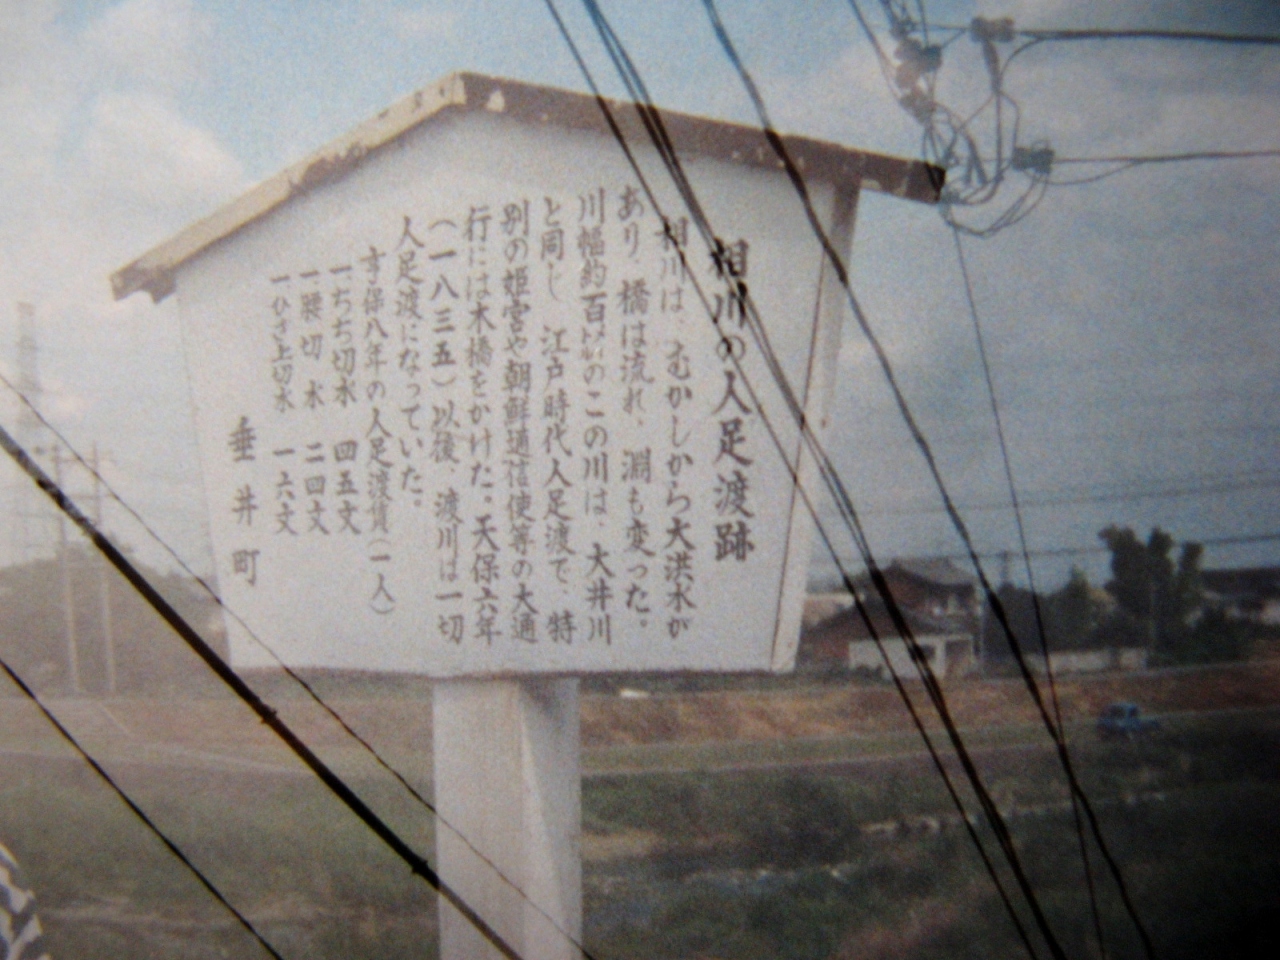 相川の人足渡跡
相川は、むかしから大洪水が
あり、橋は流れ、淵も変った。
川幅約百㍍のこの川は、大井川
と同じ 江戸時代人足渡で、特
別の姫宮や朝鮮通信使等の大通
行には木橋をかけた。天保六年
(一八三五)以後、渡川は一切
人足渡になっていた。
享保八年の人足渡賃(一人)
一ちち切水 四五文
一腰切水 二四文
一ひざ上切水 一六文
垂井町